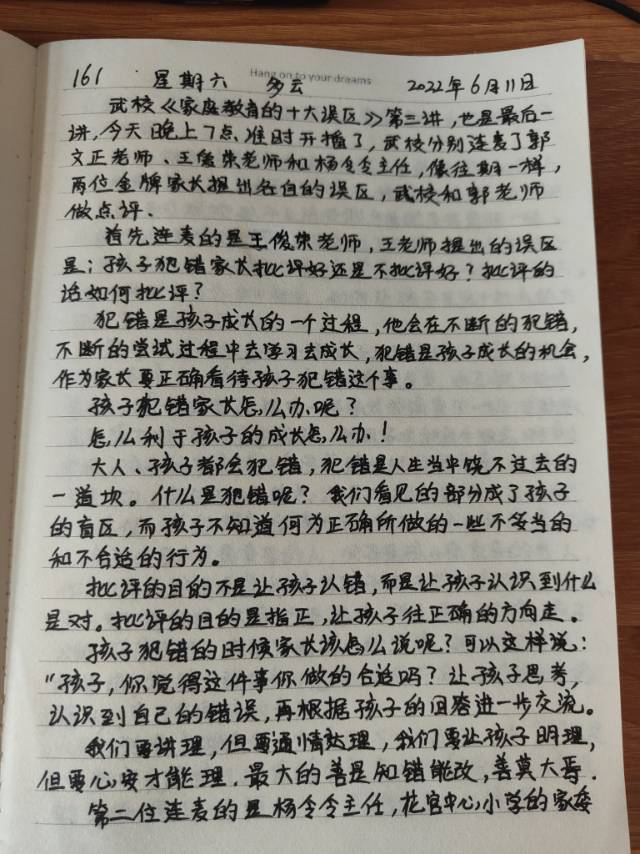 Hang on to your dreams
161 星期六 多云 2022年6月11日
武校《家庭教育的十大误区》第三讲，也是最后一
讲，今天晚上7点准时开播了，武校分别连麦了郭
文正老师、王俊荣老师和杨令令主任，像往期一样，
两位金牌家长提出各自的误区，武校和郭老师
做点评.
首先连麦的是王俊荣老师，王老师提出的误区
是：孩子犯错家长批评好还是不批评好？批评的
话如何批评？
犯错是孩子成长的一个过程，他会在不断的犯错，
不断的尝试过程中去学习去成长，犯错是孩子成长的机会，
作为家长要正确看待孩子犯错这个事。
孩子犯错家长怎么办呢？
怎么利于孩子的成长怎么办！
大人、孩子都会犯错，犯错是人生当中饶不过去的
一道坎。什么是犯错呢？我们看见的部分成了孩子
的盲区，而孩子不知道何为正确所做的一些不妥当的
和不合适的行为。
批评的目的不是让孩子认错，而是让孩子认识到什么
是对。批评的目的是指正，让孩子往正确的方向走。
孩子犯错的时候家长该怎么说呢？可以这样说：
“孩子，你觉得这件事你做的合适吗？让孩子思考，
认识到自己的错误，再根据孩子的回答进一步交流。
我们要讲理，但要通情达理，我们要让孩子明理，
但要心安才能理.最大的善是知错能改，善莫大焉.
第二位连麦的是杨令令主任，花官中心小学的家委